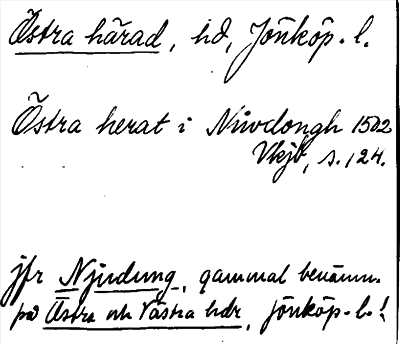 Östra härad, hd, Jönköp. l.
Östra herat i Niwdongh 1502
Vkjb, s. 124.
jfr Njudung, gammal benämn.
på Östra och Västra hdr, Jönköp. l.!